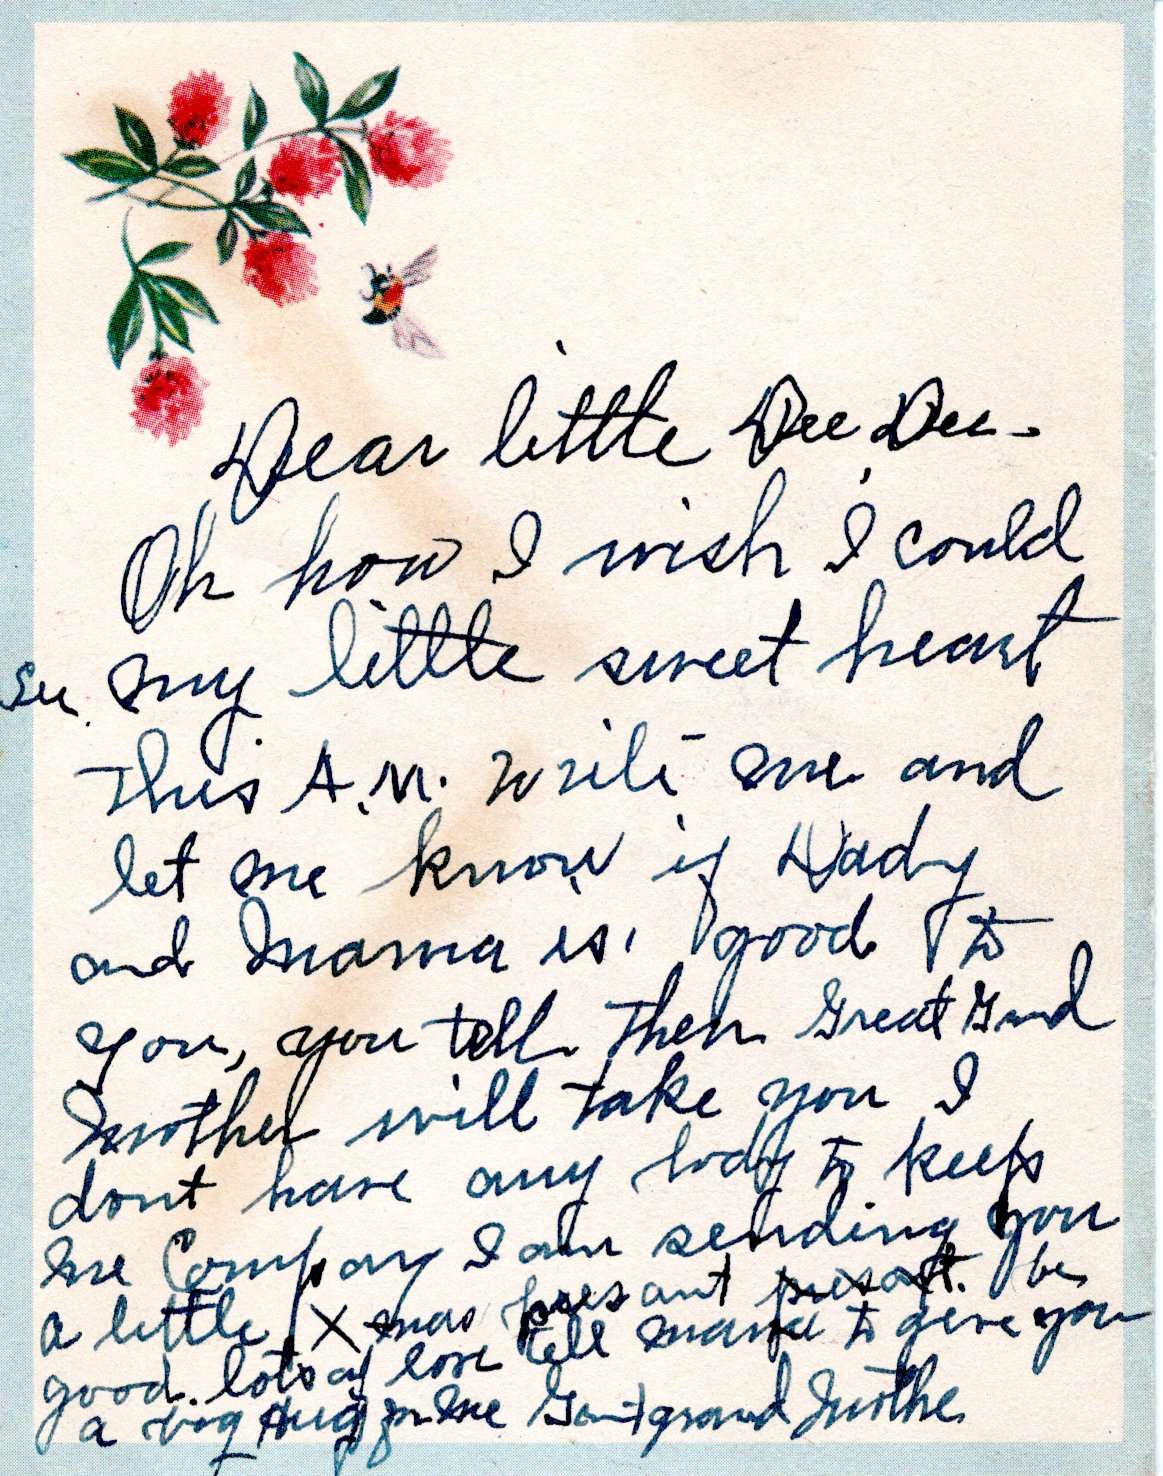 Dear little Dee Dee-
Oh how I wish I could
See my little sweet heart
This A.M. write me and
let me know if Dady
and Mama is good to
you, you tell them Great Grand
Mother will take you I
dont have any body to keep
me Company I am sending you
a little X mas presant presant. be
good. lots of love tell mama to give you
a big Hug for me Great grand Mothe